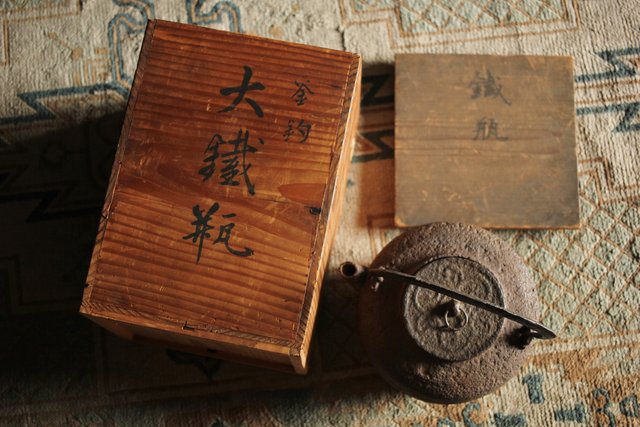 釜鈎
大鐵瓶
鐵瓶